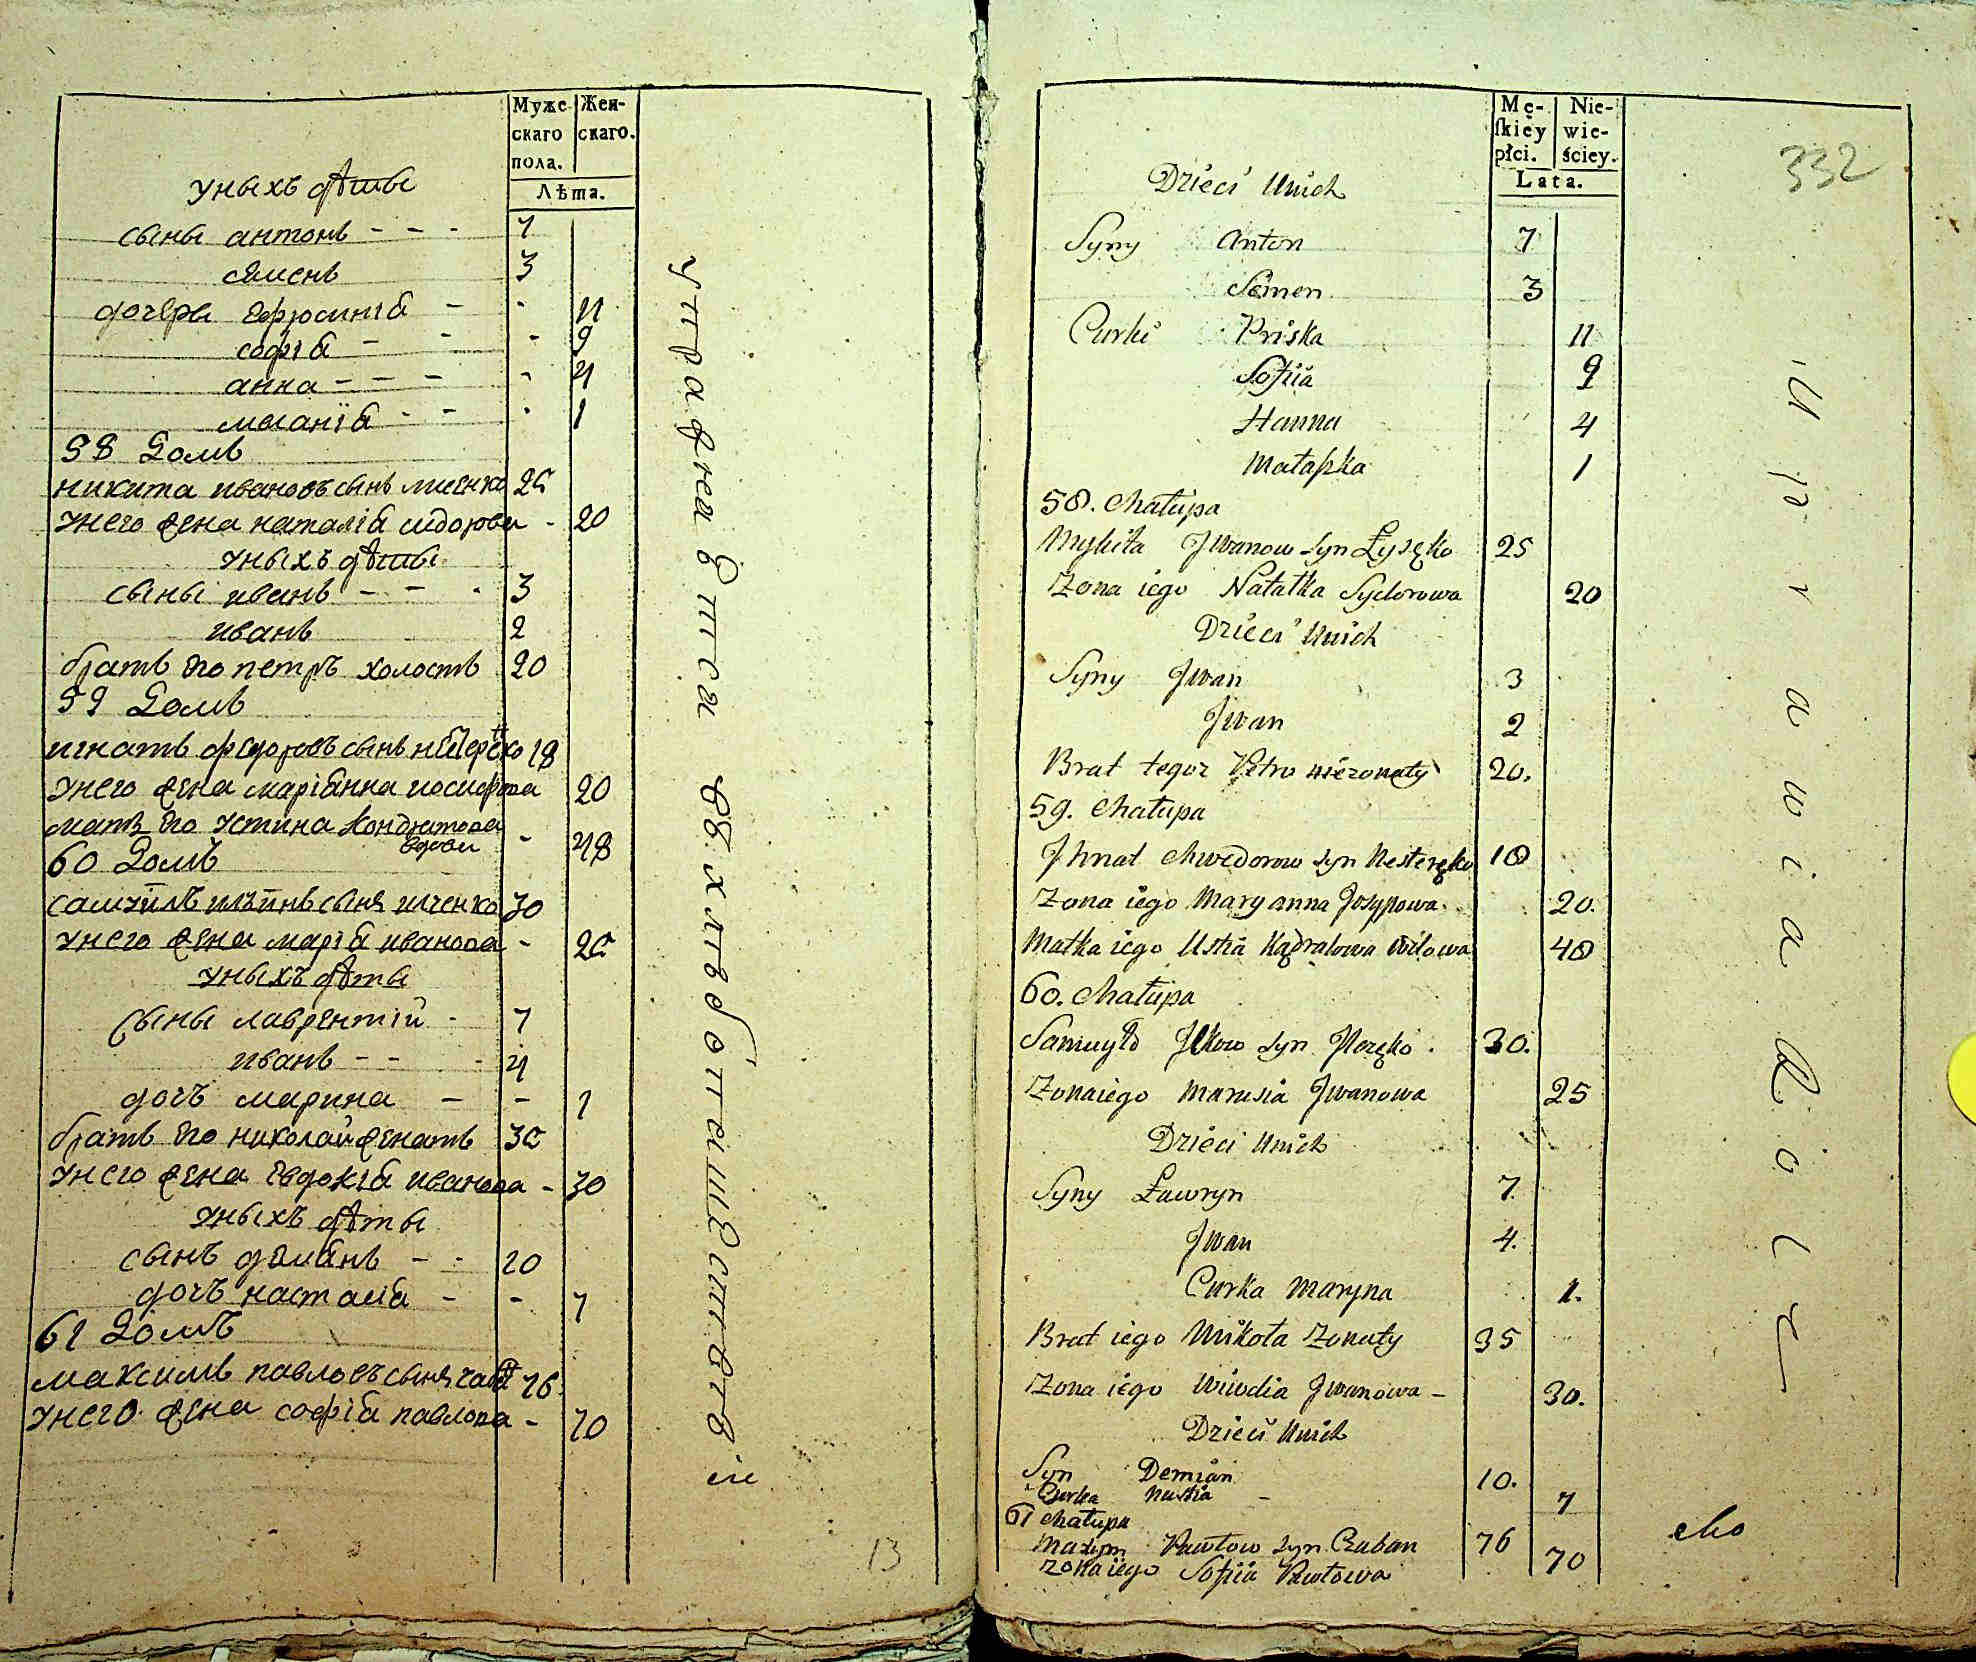 Муже скаго пола.
Жен- скаго.
Лѣта.
уныхъ дѣти
сыны антонъ - - - 7
семенъ 3
дочери ефросиніа - - 11
софіа - - - 9
анна - - - - 4
меланіа - - - 1
58 Домъ
никита ивановъ сынъ лисенко 25
унего жена наталіа сидорова - 20
уныхъ дѣти
сыны иванъ - - - 3
иванъ 2
братъ его петръ холостъ 20
59 Домъ
игнатъ федоровъ сынъ нестеренко 18
унего жена маріанна иосифова 20
мать его устина кондратова вдова - 48
60 Домъ
самуилъ ильинъ сынъ илченко 30
унего жена маріа иванова - 25
уныхъ дѣти
сыны лаврентій - 7
иванъ - - - 4
дочъ марина - - 1
братъ его николай женатъ 35
унего жена евдокіа иванова - 30
уныхъ дѣти
сынъ деміанъ - - 10
дочъ настасіа - - 7
61 Домъ
максимъ павловъ сынъ 76
унего жена софіа павлова - 70
упражнаетса въ хлѣбопашествѣ
13
Mę- skiey płci.
Nie- wie- ściey.
Lata.
332
Dzieci Unich
Syny Anton 7
Semen 3
Curki Priska 11
Sofiia 9
Hanna 4
Małaszka 1
58. Chałupa
Mykita Jwanow syn Łysęko 25
Zona iego Natałka Sydorowa 20
Dzieci Unich
Syny Jwan 3
Jwan 2
Brat tegoz Petro niezonaty 20.
59. Chałupa
Jhnat Chwedorow syn Nesteręko 18
Zona iego Maryanna Josypowa 20.
Matka iego Ustia Kądratowa wdowa 48
60. Chałupa
Samuyło Jlkow syn Jlczęko. 30.
Zona iego Marusia Jwanowa 25
Dzieci Unich
Syny Ławryn 7
Jwan 4.
Curka Maryna 1.
Brat iego Mikoła Zonaty 35
Zona iego Wiwdia Jwanowa - 30.
Dzieci Unich
Syn Demian 10.
Curka Nastia - 7
61 Chałupa
Maxym Pawłow syn Czaban 76
Zona iego Sofiia Pawłowa 70
Uprawia Rolę